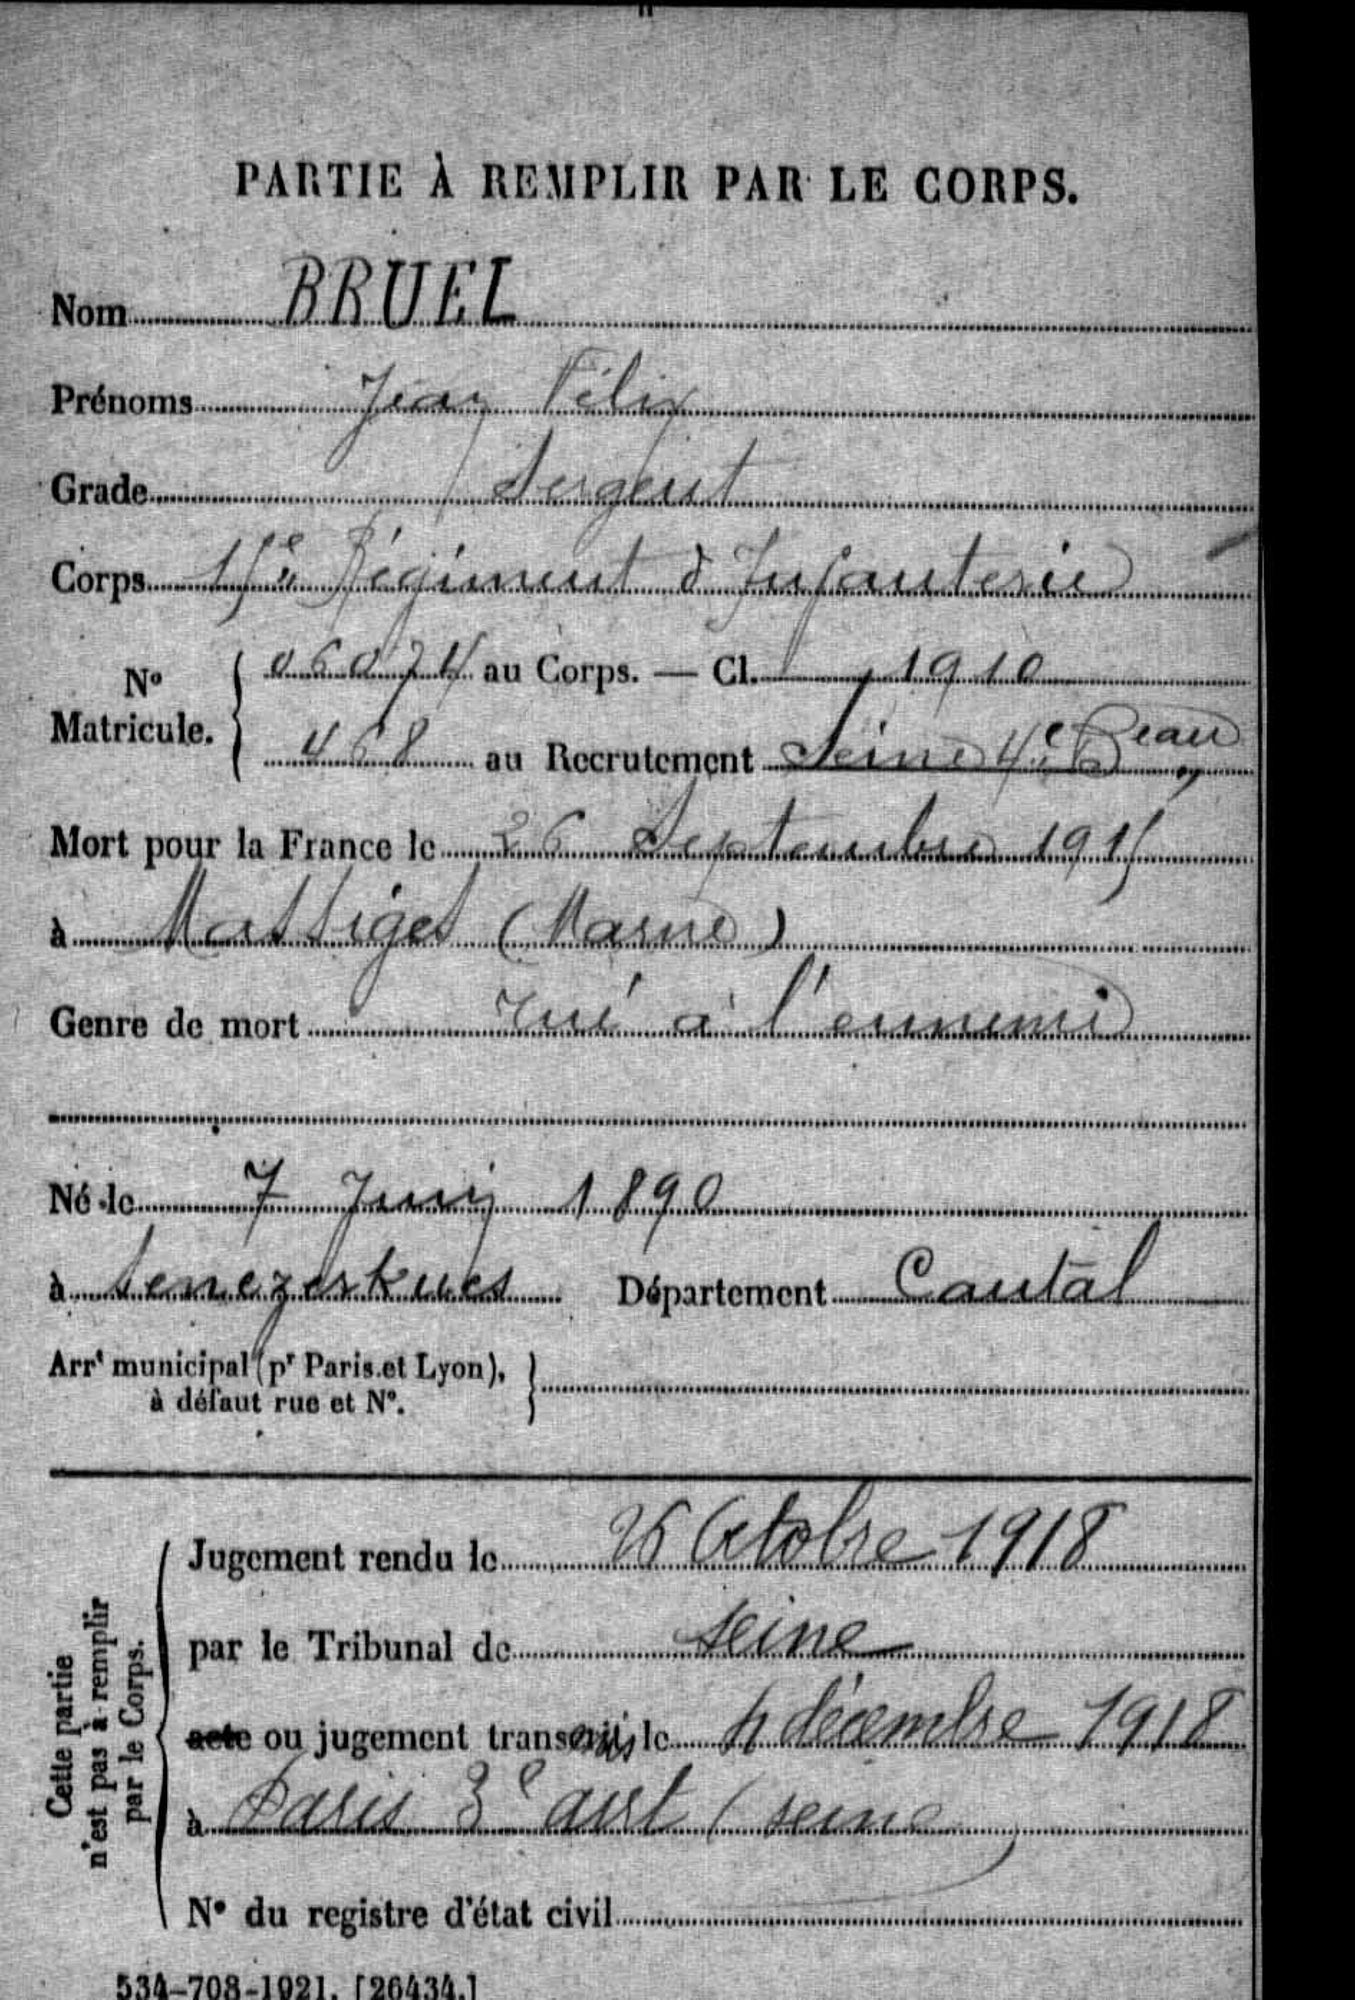 PARTIE À REMPLIR PAR LE CORPS.
Nom BRUEL
Prénoms Jean Félix
Grade Sergent
Corps 15e Régiment d'Infanterie
No Matricule. { 06074 au Corps. — Cl. 1910
468 au Recrutement Seine 4e Beau
Mort pour la France le 26 Septembre 1915
à Massiges (Marne)
Genre de mort Tué à l'ennemi
Né le 7 Juin 1890
à Senezergues Département Cantal
Arrt municipal (pr Paris et Lyon), à défaut rue et No. }
Cette partie n'est pas à remplir par le Corps.
Jugement rendu le 26 Octobre 1918
par le Tribunal de Seine
acte ou jugement transcris le 4 décembre 1918
à Paris 3e arrt (Seine)
No du registre d'état civil
534-708-1921. [26434.]